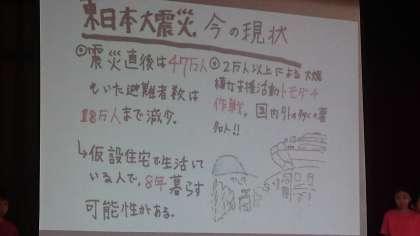 東日本大震災 今の現状
◎震災直後は47万人
もいた避難者数は
18万人まで減少。
↳仮設住宅で生活して
いる人で、8年暮らす
可能性がある。
◎2万人以上による大規
模な支援活動トモダチ
作戦。国内外の多くの著
名人!!